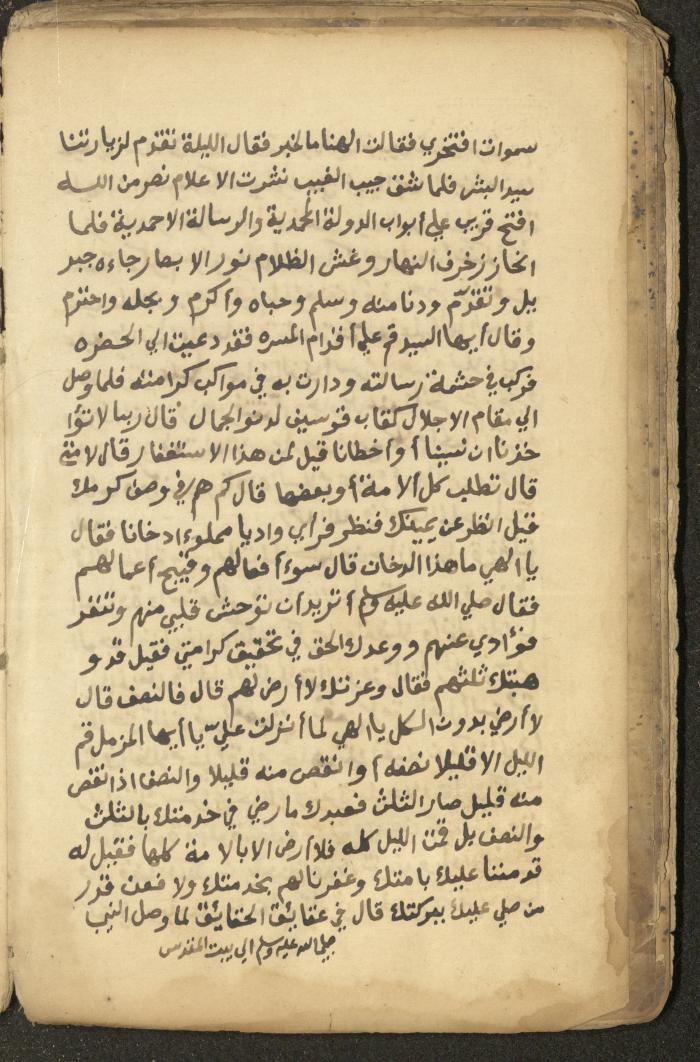 سموات افتخري فقالت الهنا ما الخبر فقال الليلة تقدم لزيارتنا
سيد البشر فلما شق جيب الغيب نشرت الاعلام نصر من الله
افتح قريب علي أبواب الدولة المحمدية والرسالة الاحمدية فلما
انحاز زخرف النهار وغش الظلام نور الابصار جاءه جبر
يل وتقدّم ودنا منه وسلم وحباه وأكرم وبجله واحترم
وقال أيها السيد قم علي أقدام المسره فقد دعيت الي الحضره
فركب في حشمة رسالته ودارت به في مواكب كرامته فلما وصل
الي مقام الاجلال كقاب قوسين لدنو الجمال قال ربنا لا تؤا
خذنا ان نسينا أو أخطانا قيل لمن هذا الاستغفار قال لامتي
قال تطلب كل ألامة أو بعضها قال كم هم في وصف كرمك
قيل انظر عن يمينك فنظر فرأي واديا مملوءا دخانا فقال
يا الهي ما هذا الدخان قال سوء أفعالهم وقبيح أعمالهم
فقال صلي الله عليه وسلم أتريد أن توحش قلبي منهم وتنفر
فوءادي عنهم ووعدك الحق في تحقيق كرامتي فقيل قد و
هبتك ثلثهم فقال وعزتك لا أرض لهم قال فالنصف قال
لا أرضي بدون الكل يا الهي لما أنزلت عليّ يا أيها المزمل قم
الليل الا قليلا نصفه أو انقص منه قليلا والنصف اذا نقص
منه قليل صار الثلث فعبدك ما رضي في خدمتك بالثلث
والنصف بل قمت الليل كله فلا أرض الا بالامة كلها فقيل له
قد مننا عليك بامتك وغفرنا لهم بخدمتك ولا قدر
من صلي عليك ببركتك قال في عقايق الحقايق لما وصل النبي
صلي الله عليه وسلم الي بيت المقدس